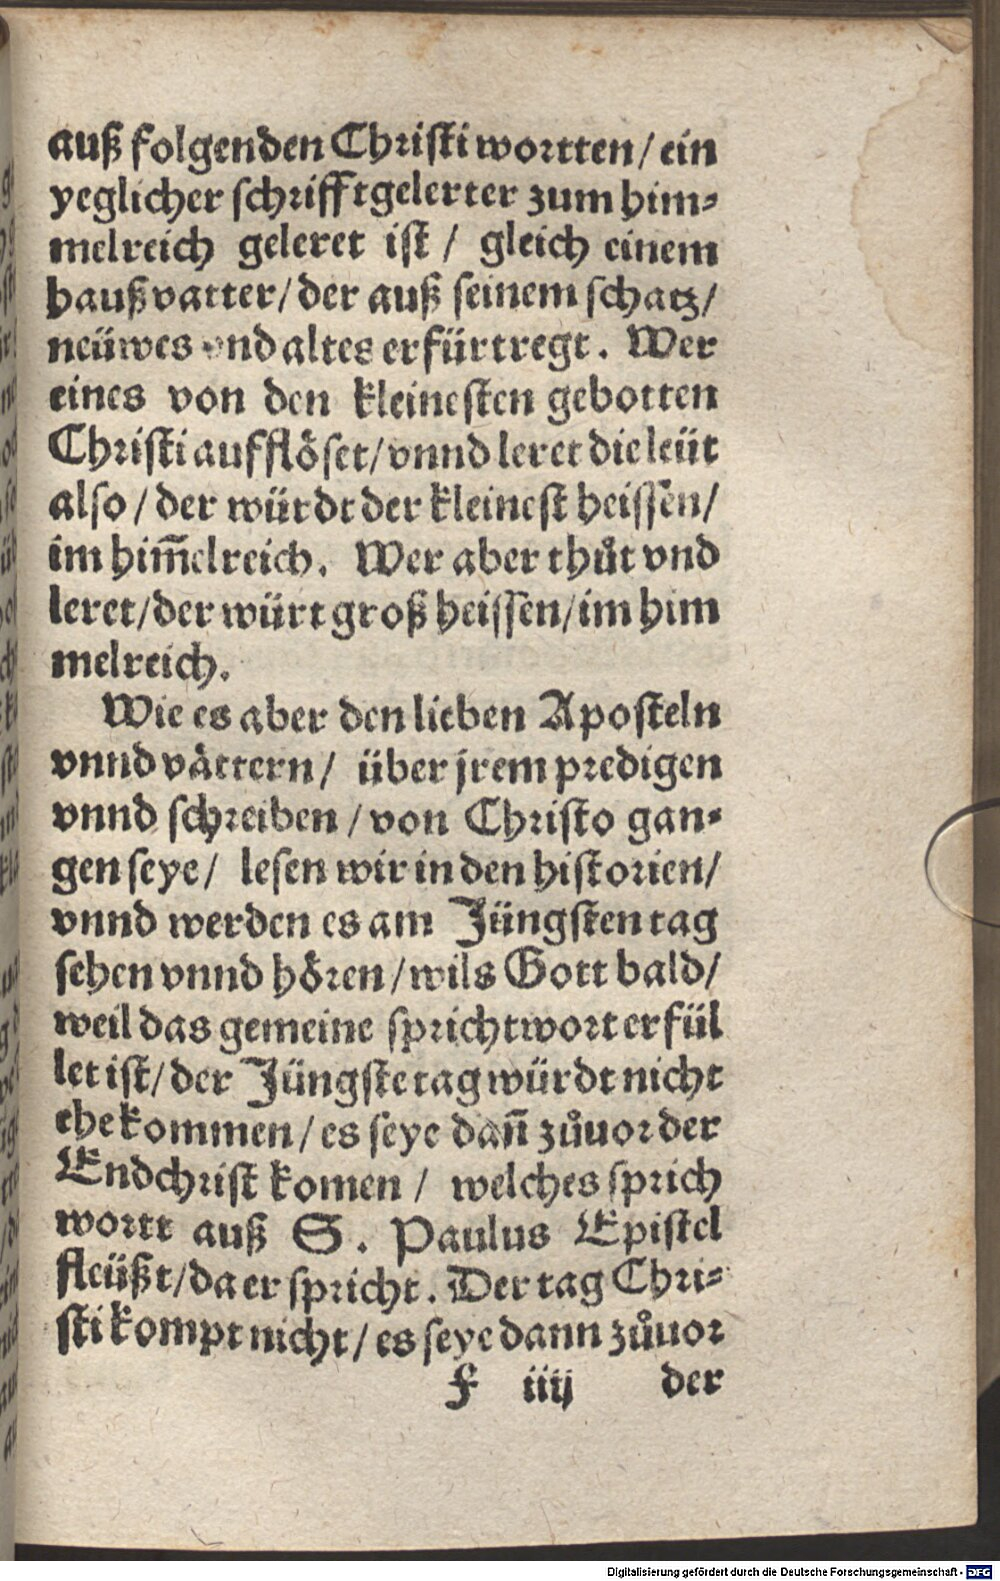 auß folgenden Christi wortten / ein
yeglicher schrifftgelerter zum him-
melreich geleret ist / gleich einem
haußvatter / der auß seinem schatz /
neüwes vnd altes erfürtregt. Wer
eines von den kleinesten gebotten
Christi aufflöset / vnnd leret die leüt
also / der würdt der kleinest heissen /
im him̃elreich. Wer aber thůt vnd
leret / der würt groß heissen / im him
melreich.
Wie es aber den lieben Aposteln
vnnd vättern / über jrem predigen
vnnd schreiben / von Christo gan-
gen seye / lesen wir in den historien /
vnnd werden es am Jüngsten tag
sehen vnnd hören / wils Gott bald /
weil das gemeine sprichtwort erfül
let ist / der Jüngste tag würdt nicht
ehe kommen / es seye dañ zůuor der
Endchrist komen / welches sprich
wortt auß S. Paulus Epistel
fleüßt / da er spricht. Der tag Chri-
sti kompt nicht / es seye dann zůuor
F iiij der
Digitalisierung gefördert durch die Deutsche Forschungsgemeinschaft - DFG